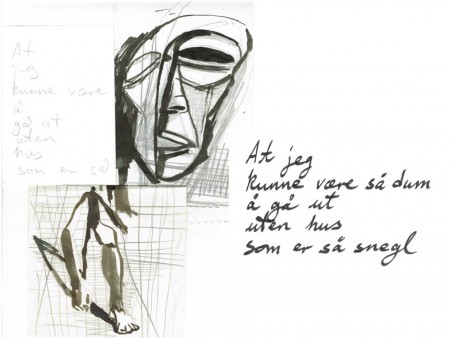 At
jeg
kunne være
å
gå ut
uten
hus
som er så
At jeg
kunne være så dum
å gå ut
uten hus
som er så snegl